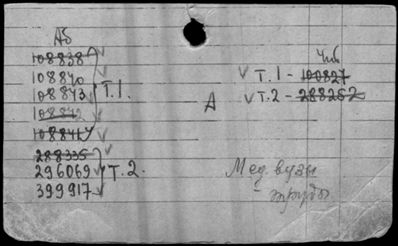 Аб
108838
108840
108843
108842
108841
Т.1.
288335
296069
399917
Т.2.
А
Чит
Т.1 - 100827
Т.2 - 288252
Мед. вузы
- труды